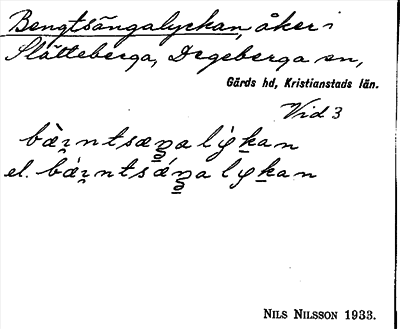 Bengtsängalyckan, åker i
Slätteberga, Degeberga sn,
Gärds hd, Kristianstads län.
Vid 3
bæ̀ṇntsæŋalykan
el. bæ̀ṇntsǽŋalykan
NILS NILSSON 1933.